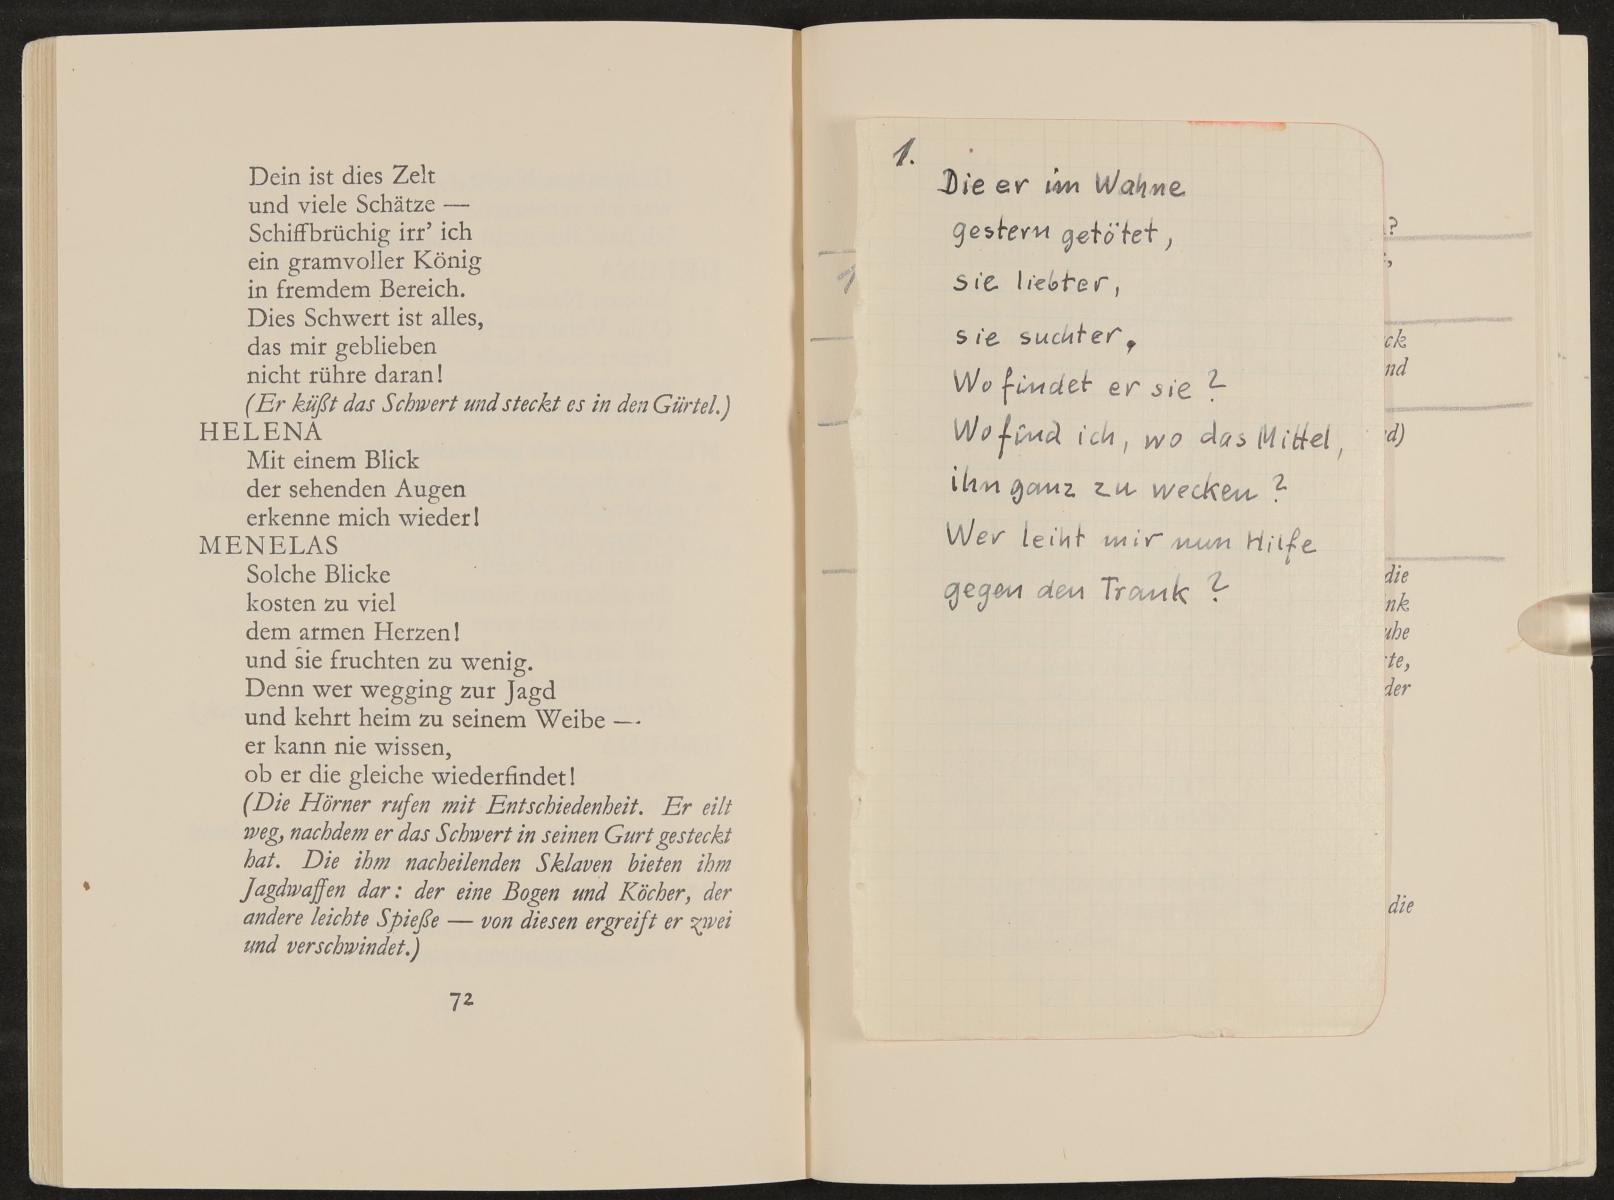 Dein ist dies Zelt
und viele Schätze —
Schiffbrüchig irr’ ich
ein gramvoller König
in fremdem Bereich.
Dies Schwert ist alles,
das mir geblieben
nicht rühre daran!
(Er küßt das Schwert und steckt es in den Gürtel.)
HELENA
Mit einem Blick
der sehenden Augen
erkenne mich wieder!
MENELAS
Solche Blicke
kosten zu viel
dem armen Herzen!
und sie fruchten zu wenig.
Denn wer wegging zur Jagd
und kehrt heim zu seinem Weibe —
er kann nie wissen,
ob er die gleiche wiederfindet!
(Die Hörner rufen mit Entschiedenheit. Er eilt
weg, nachdem er das Schwert in seinen Gurt gesteckt
hat. Die ihm nacheilenden Sklaven bieten ihm
Jagdwaffen dar: der eine Bogen und Köcher, der
andere leichte Spieße — von diesen ergreift er zwei
und verschwindet.)
72
1.
Die er im Wahne
gestern getötet,
sie liebter,
sie suchter.
Wo findet er sie?
Wo find ich, wo das Mittel,
ihn ganz zu wecken?
Wer leiht mir nun Hilfe
gegen den Trank?
?
,
ck
nd
d)
die
nk
uhe
te,
der
die